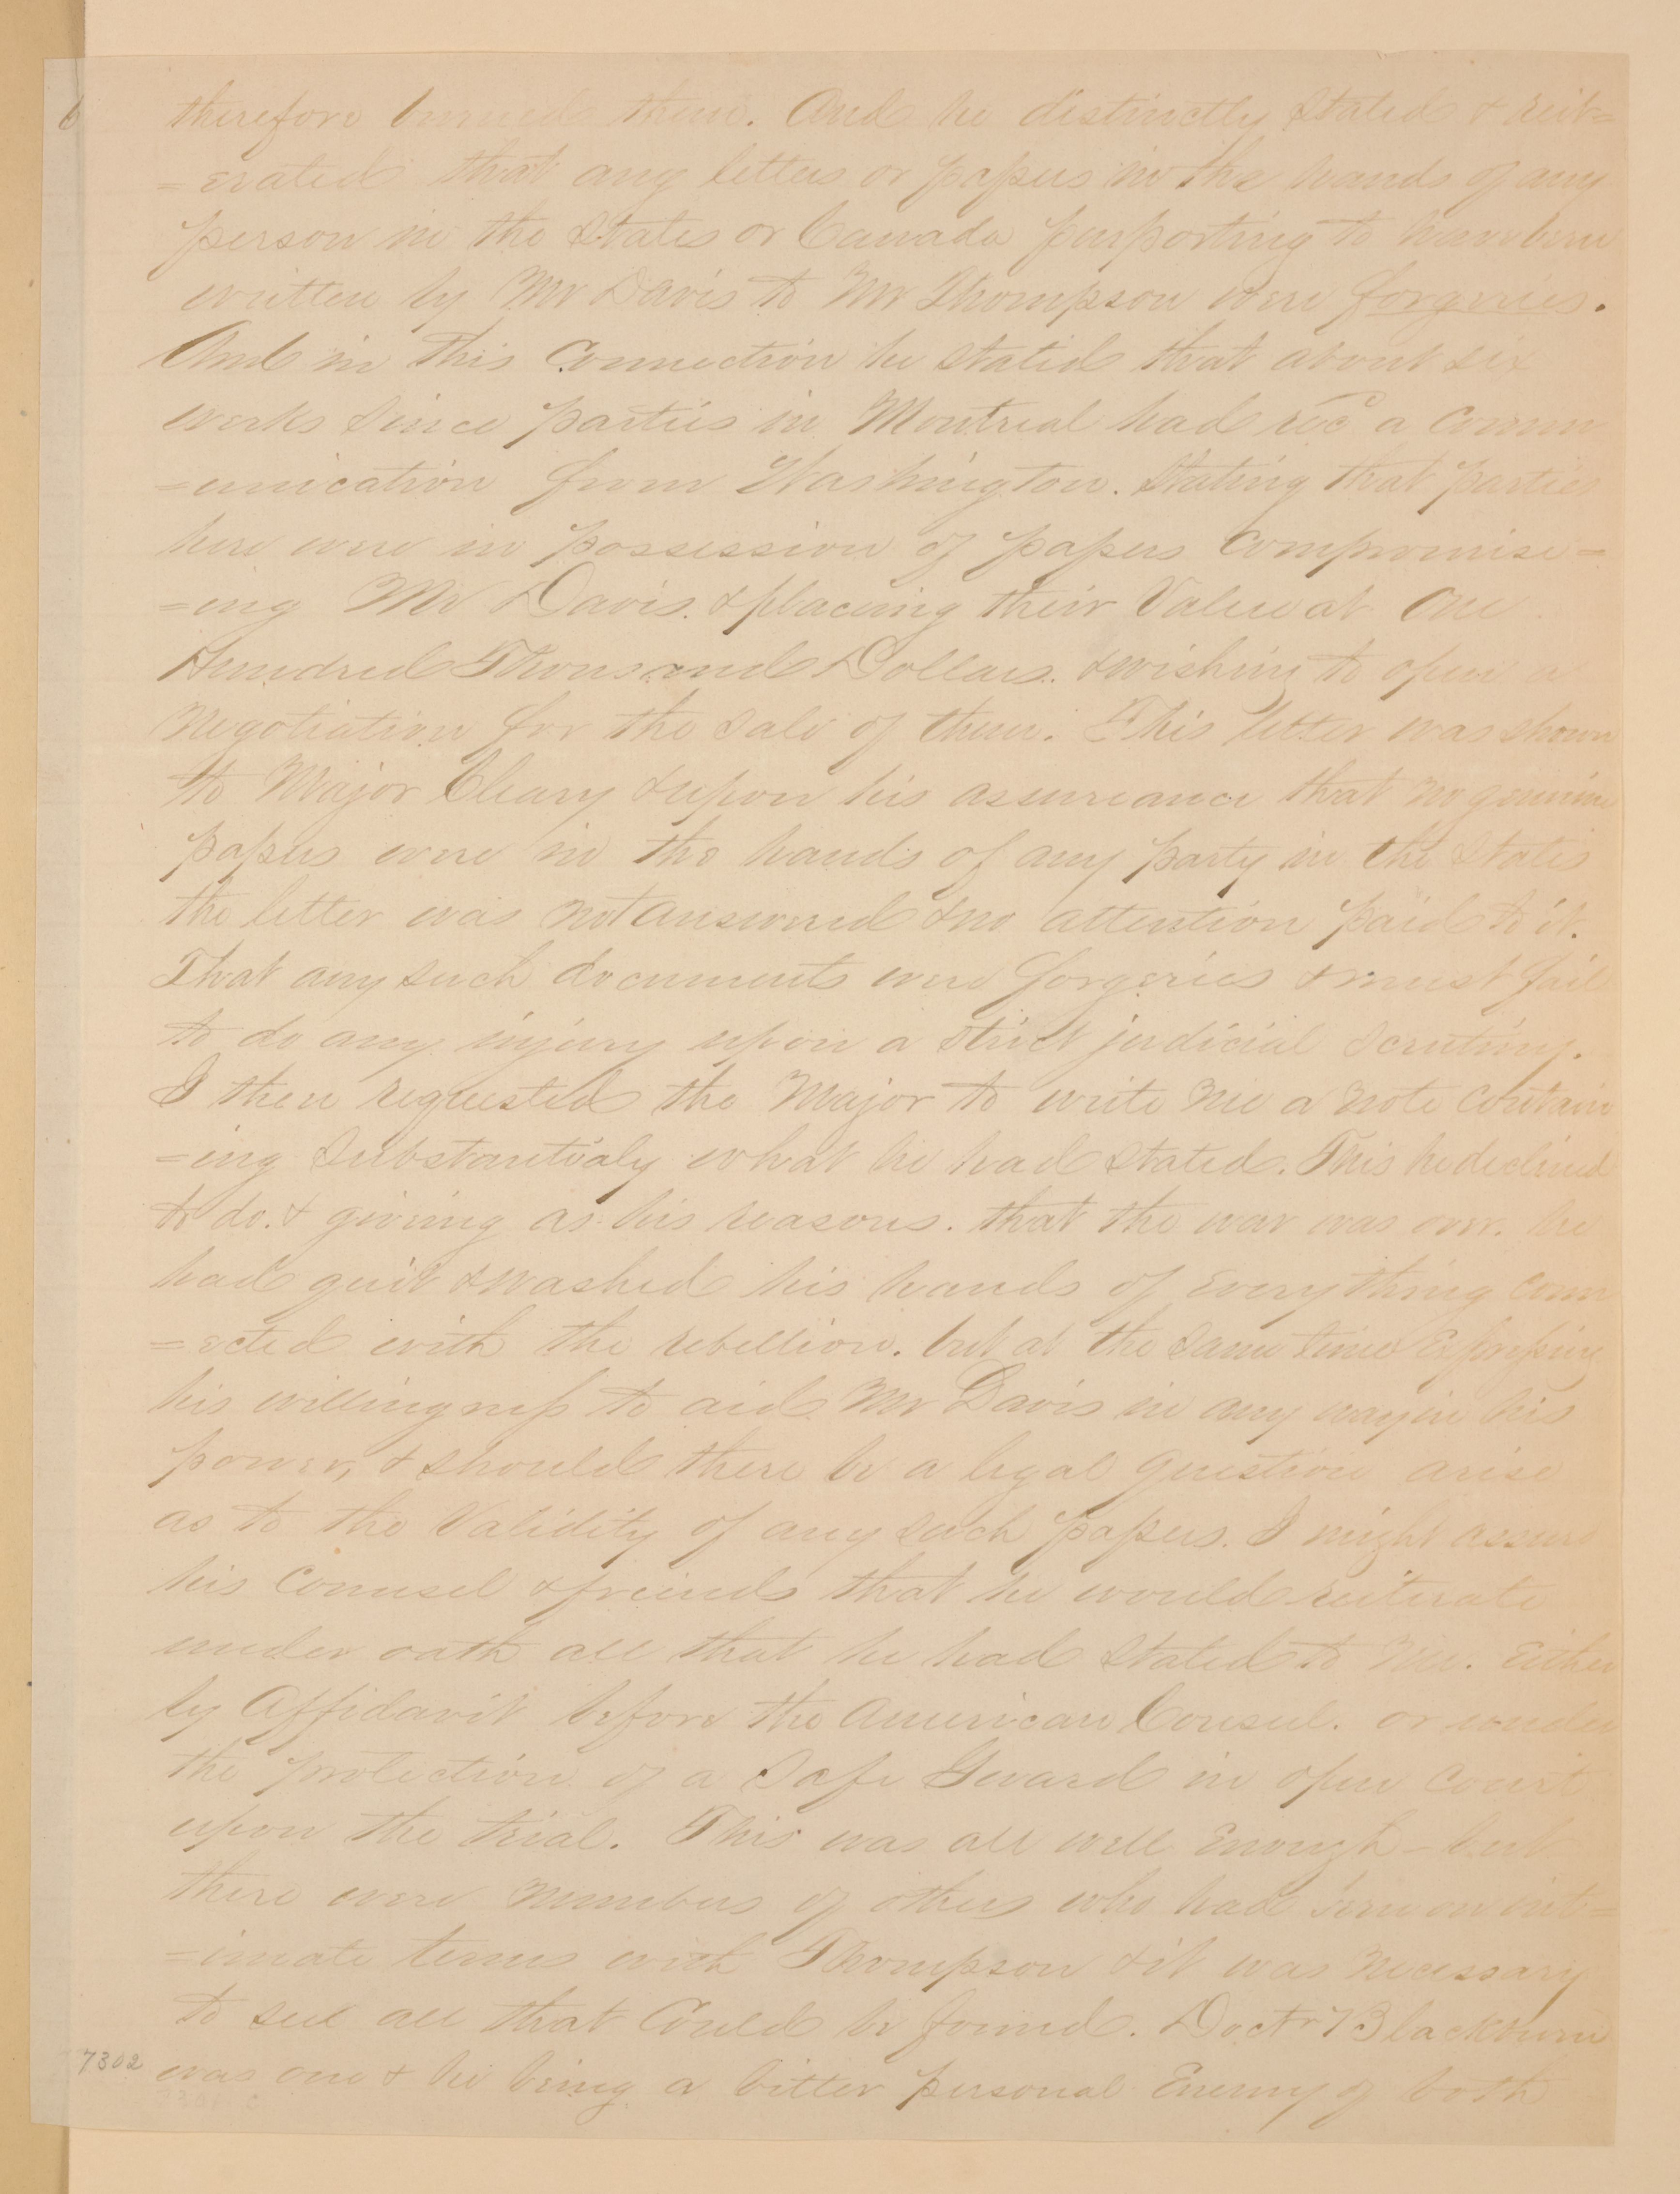 6
therefore burned them. And he distinctly stated & reit=
=erated that any letters or papers in the hands of any
person in the States or Canada purporting to have been
written by Mr Davis to Mr Thompson were forgeries.
And in this Connection he stated that about six
weeks since parties in Montreal had recd a Comm
=unication from Washington. Stating that parties
here were in possession of papers Compromise=
=ing Mr Davis. & placing their Value at One
Hundred Thousand Dollars. & wishing to open a
Negotiation for the sale of them. This letter was shown
to Major Cleary & upon his assureance that no genuine
papers were in the hands of any party in the States
the letter was not answered & no attention paid to it.
That any such documents were forgeries & must fail
to do any injury upon a strict judicial scrutiny.
I then requested the Major to write me a note Contain
=ing Substantialy what he had stated. This he declined
to do. & giving as his reasons. that the war was over. he
had quit & washed his hands of everything Conn
=ected with the rebellion. but at the same time Expressing
his willingness to aid Mr Davis in any way in his
power, & should there be a legal question arise
as to the Validity of any such papers. I might assure
his Counsel & freinds that he would reiterate
under oath all that he had stated to me. Either
by Affidavit before the American Consul. or under
the protection of a Safe Guard in open Court
upon the trial. This was all well Enough - but
there were numbers of others who had been on int=
=imate terms with Thompson & it was necessary
to see all that Could be found. Doctr Blackburn
was one & he being a bitter personal Enemy of both
7302